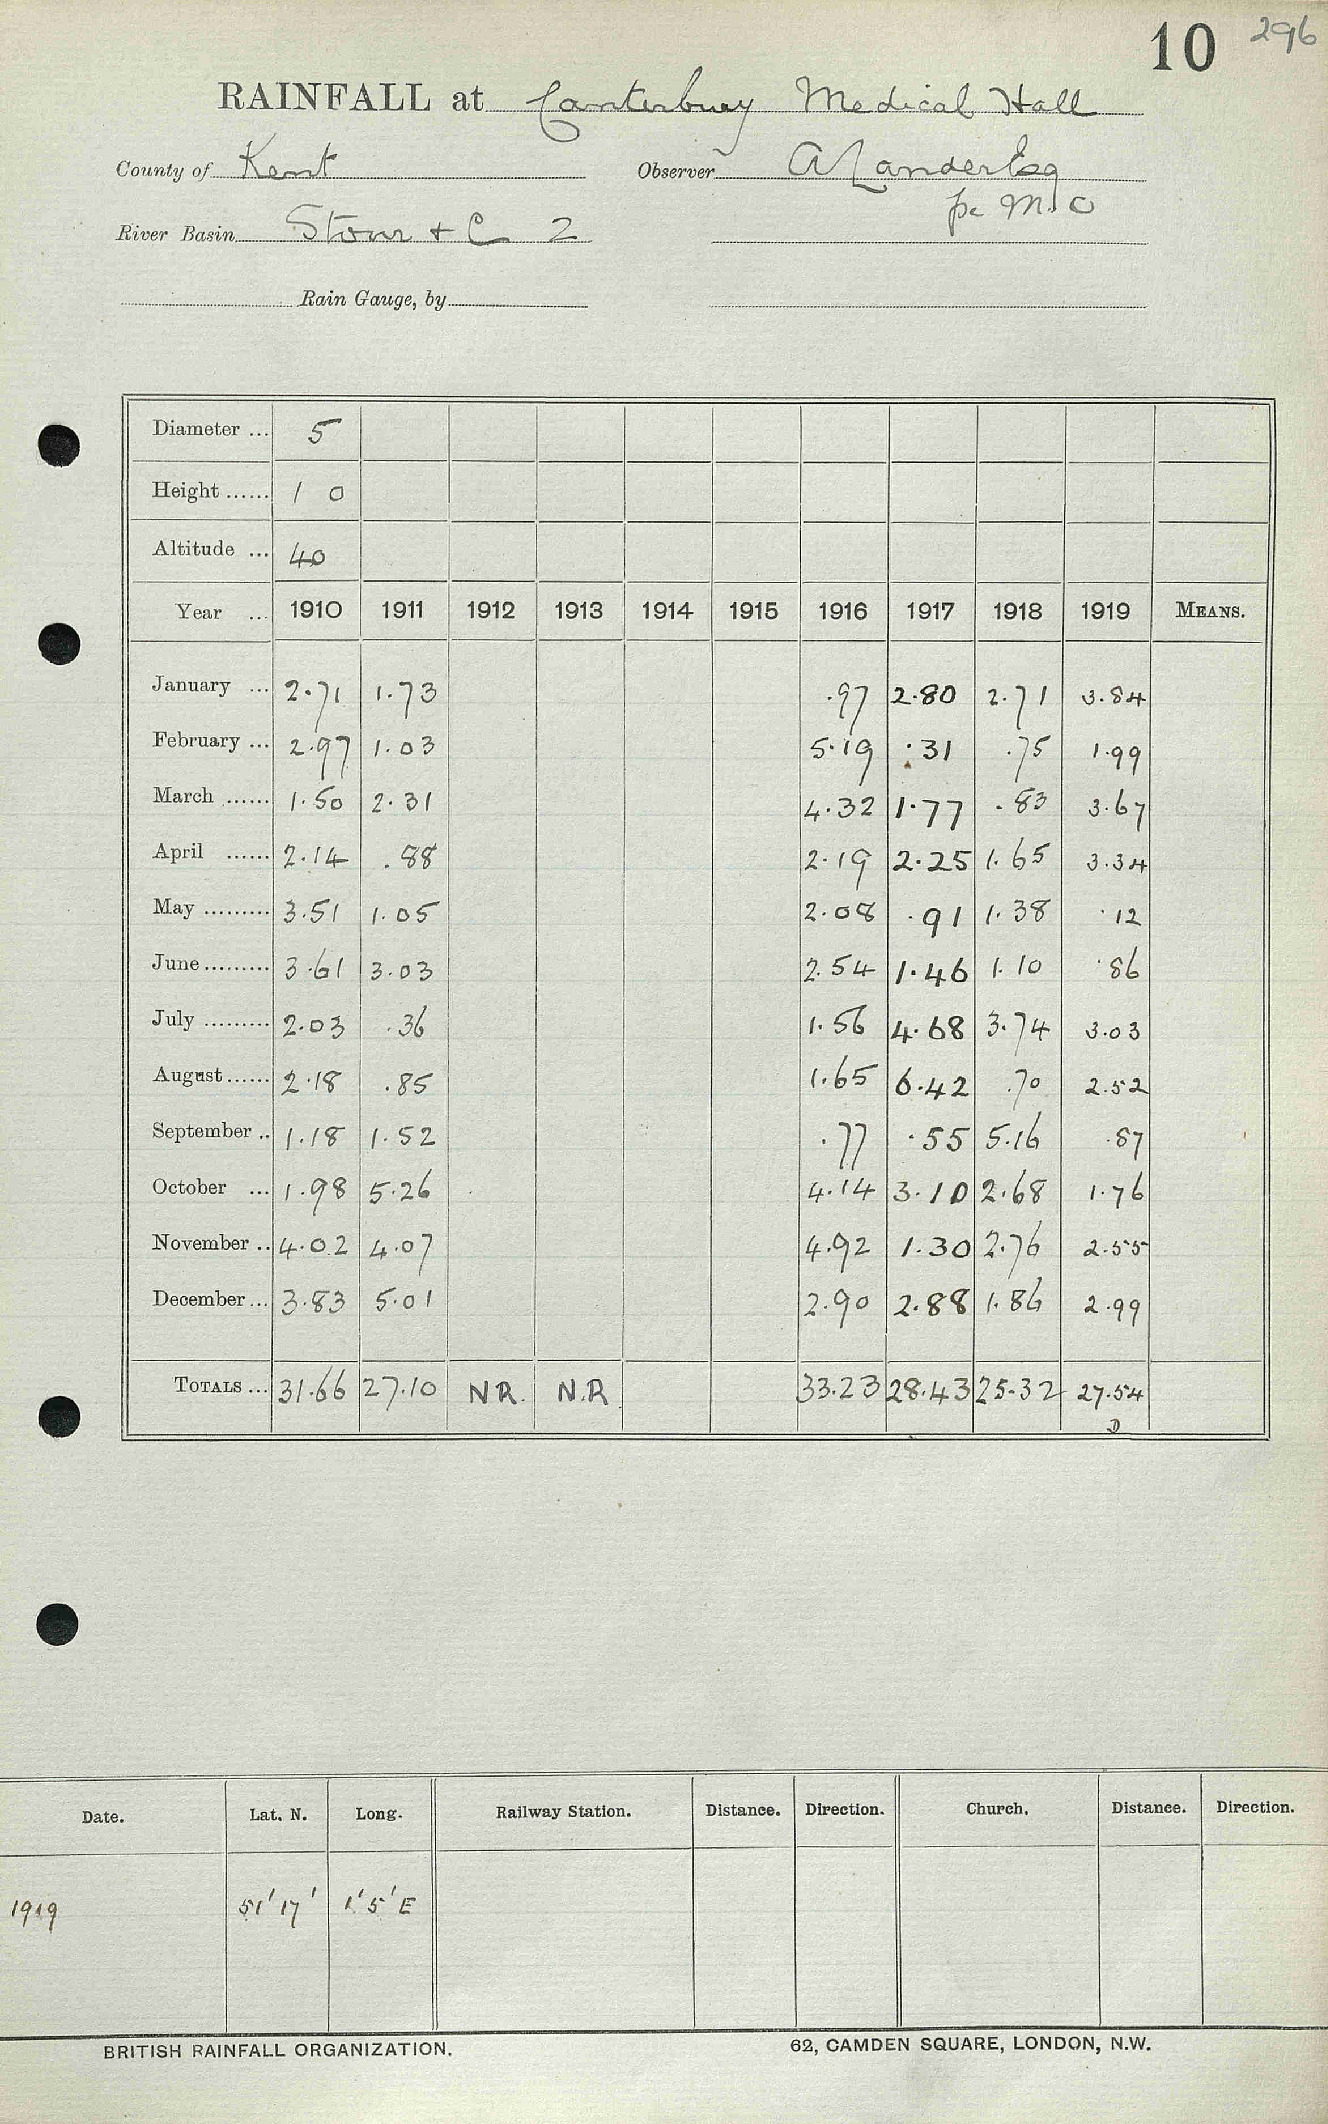 10 296
RAINFALL at Canterbury Medical Hall
County of Kent Observer A Lander Esq
pe M.O
River Basin Stour + C 2
Rain Gauge, by
Diameter ... 5
Height ...... 1 0
Altitude ... 40
Year ... 1910 1911 1912 1913 1914 1915 1916 1917 1918 1919 MEANS.
January ... 2.71 1.73 .97 2.80 2.71 3.84
February ... 2.97 1.03 5.19 .31 .75 1.99
March ...... 1.50 2.31 4.32 1.77 .83 3.67
April ...... 2.14 .88 2.19 2.25 1.65 3.34
May ......... 3.51 1.05 2.08 .91 1.38 .12
June ......... 3.61 3.03 2.54 1.46 1.10 .86
July ......... 2.03 .36 1.56 4.68 3.74 3.03
August ...... 2.18 .85 1.65 6.42 .70 2.52
September .. 1.18 1.52 .77 .55 5.16 .87
October ... 1.98 5.26 4.14 3.10 2.68 1.76
November .. 4.02 4.07 4.92 1.30 2.76 2.55
December ... 3.83 5.01 2.90 2.88 1.86 2.99
TOTALS ... 31.66 27.10 NR. N.R 33.23 28.43 25.32 27.54
D
Date. Lat. N. Long. Railway Station. Distance. Direction. Church. Distance. Direction.
1919 51' 17' 1' 5' E
BRITISH RAINFALL ORGANIZATION. 62, CAMDEN SQUARE, LONDON, N.W.